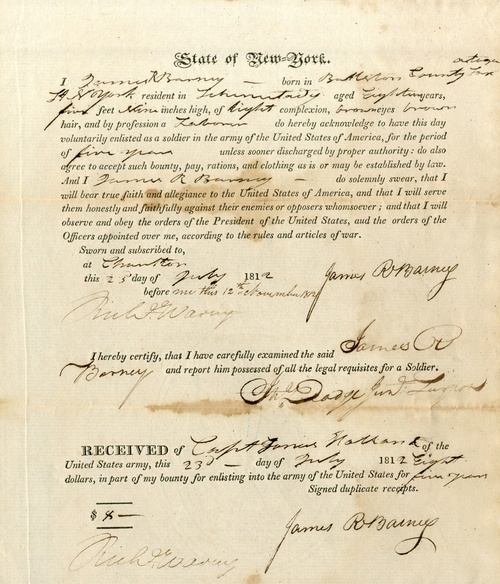 State of New-York.
I James R Barney — born in County
resident in aged Eighteen years,
five feet Nine inches high, of light complexion, brown eyes brown
hair, and by profession a do hereby acknowledge to have this day
voluntarily enlisted as a soldier in the army of the United States of America, for the period
of five years unless sooner discharged by proper authority: do also
agree to accept such bounty, pay, rations, and clothing as is or may be established by law.
And I James R Barney — do solemnly swear, that I
will bear true faith and allegiance to the United States of America, and that I will serve
them honestly and faithfully against their enemies or opposers whomsoever; and that I will
observe and obey the orders of the President of the United States, and the orders of the
Officers appointed over me, according to the rules and articles of war.
Sworn and subscribed to,
at Charlton
this day of July 1812 James R Barney
before me this 12th November
I hereby certify, that I have carefully examined the said James R
Barney and report him possessed of all the legal requisites for a Soldier.
Dodge
RECEIVED of Capt James of the
United States army, this 23d — day of July 1812 Eight
dollars, in part of my bounty for enlisting into the army of the United States for five years
Signed duplicate receipts.
$ 8 —
James R Barney